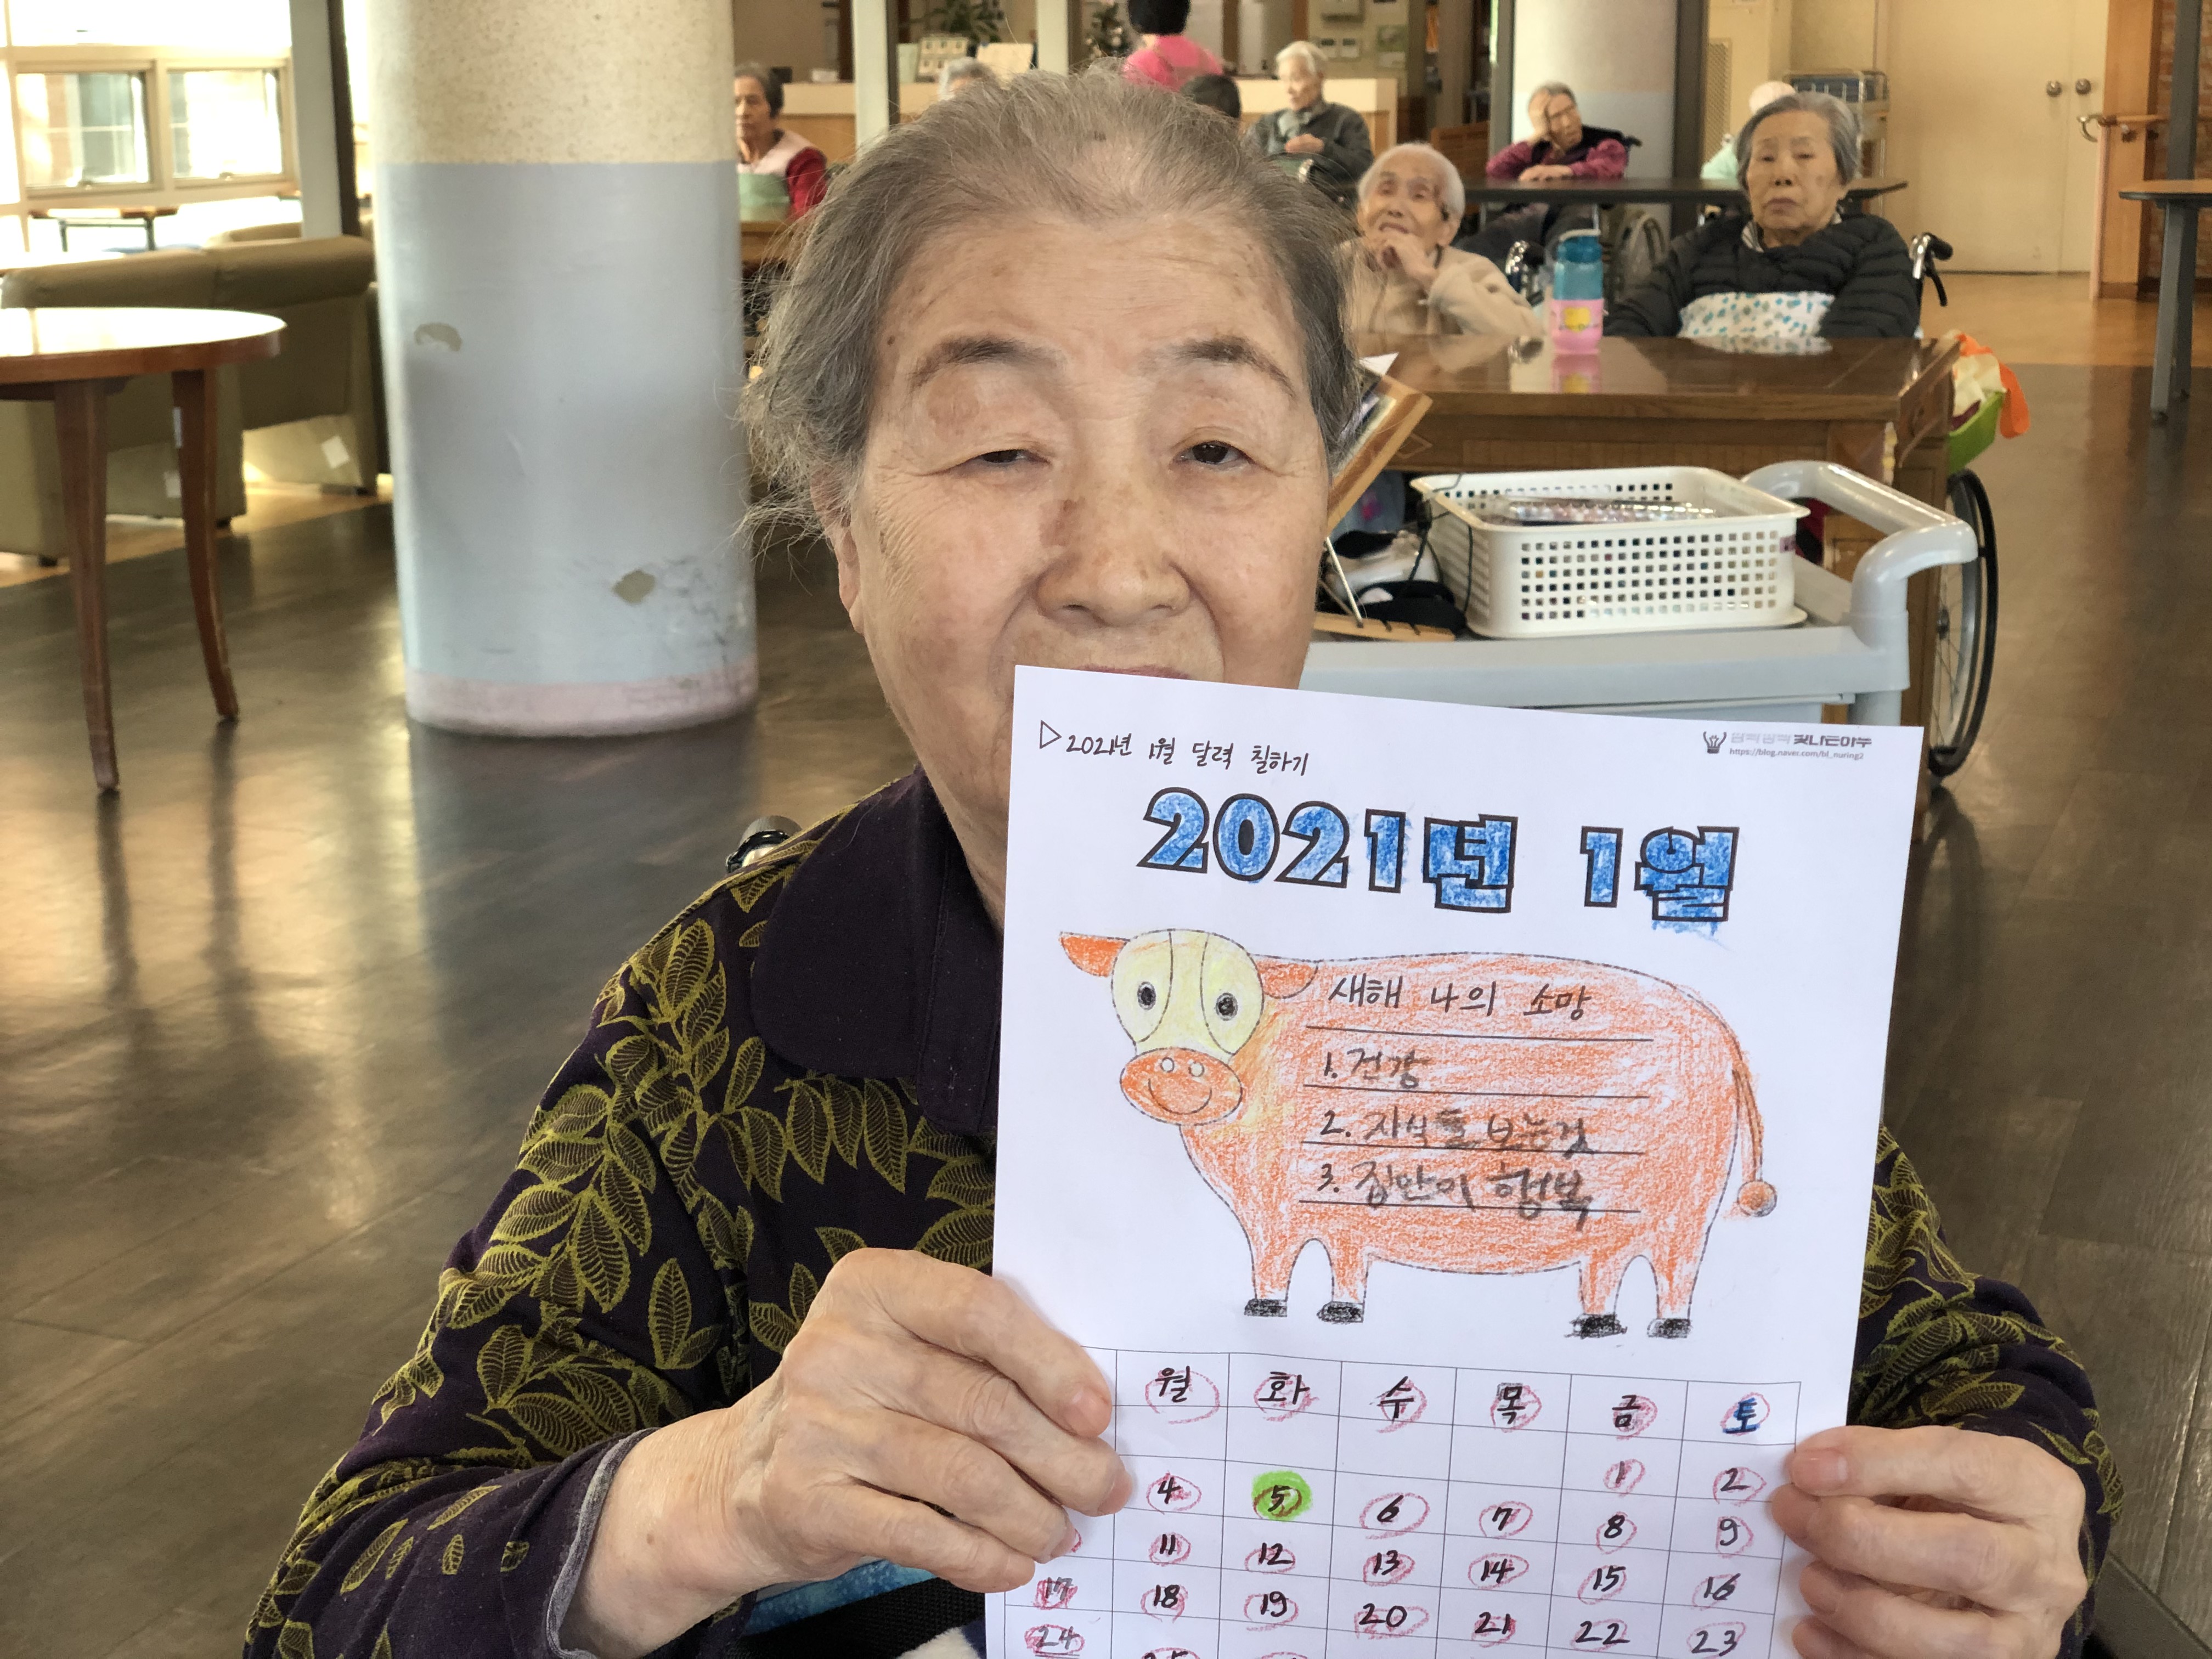 ▷2021년 1월 달력 칠하기
빛나는하루
https://blog.naver.com/bl_nuring2
2021년 1월
새해 나의 소망
1. 건강
2. 자식들 보는것
3. 집안이 행복
월 화 수 목 금 토
1 2
4 5 6 7 8 9
11 12 13 14 15 16
17 18 19 20 21 22 23
24